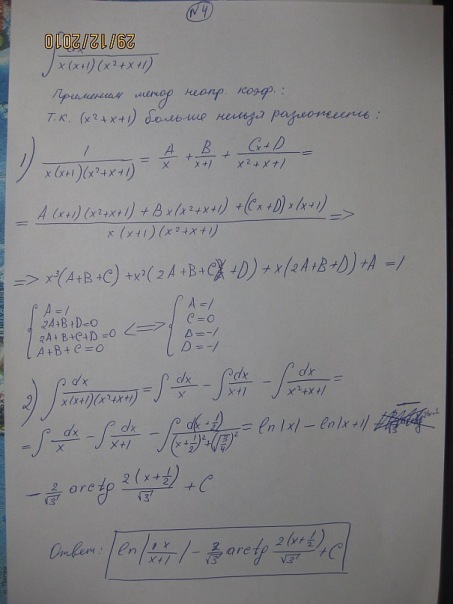 №4
29/12/2010
∫ dx / x(x+1)(x²+x+1)
Применим метод неопр. коэф.:
Т.к. (x²+x+1) больше нельзя разложить:
1) 1 / x(x+1)(x²+x+1) = A/x + B/x+1 + Cx+D / x²+x+1 =
= A(x+1)(x²+x+1) + Bx(x²+x+1) + (Cx+D)x(x+1) / x(x+1)(x²+x+1) =>
=> x³(A+B+C) + x²(2A+B+C+D) + x(2A+B+D) + A = 1
{ A=1 <=> { A=1
2A+B+D=0 C=0
2A+B+C+D=0 B=-1
A+B+C=0 D=-1
2) ∫ dx / x(x+1)(x²+x+1) = ∫ dx/x - ∫ dx/x+1 - ∫ dx / x²+x+1 =
= ∫ dx/x - ∫ dx/x+1 - ∫ d(x+1/2) / (x+1/2)²+(√3/4)² = ln|x| - ln|x+1|
- 2/√3 arctg 2(x+1/2)/√3 + C
Ответ: ln|x/x+1| - 2/√3 arctg 2(x+1/2)/√3 + C